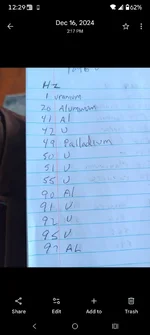 12:29
62%
Dec 16, 2024
2:17 PM
Hz
1 uranium
20 Aluminum
41 Al
42 U
49 Palladium
50 U
51 U
55 U
90 Al
91 U
92 U
95 U
97 AL
Share Edit Add to Trash